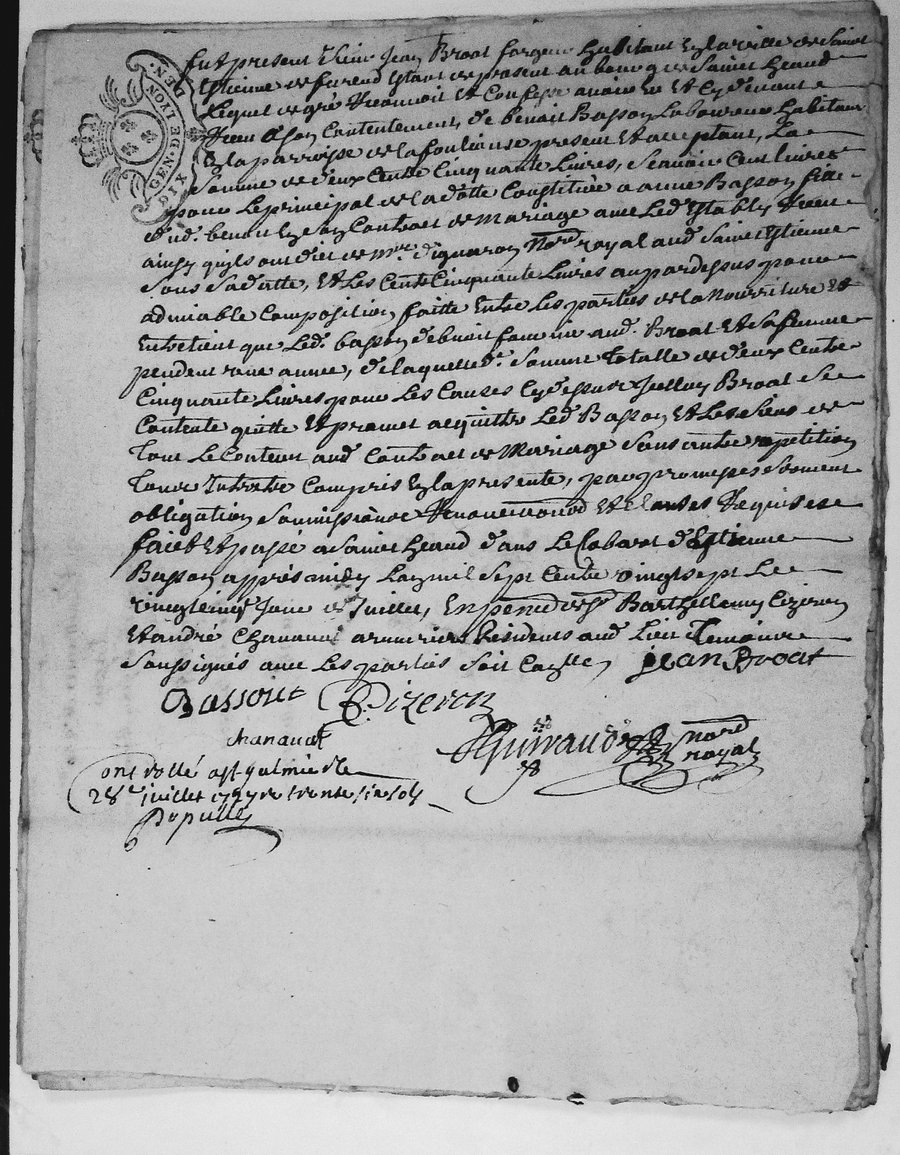 GEN. DE LYON DIX DEN.
fut present Sieur Jean Broat forgeur habitant en la ville de Saint
Estienne de furend estant de present au bourg de Saint heand
Lequel de gré reconnoit et Confesse avoir eu et cy devant
receu a son Contentement, de benoit Basson Laboureur habitant
en la parroisse de la fouliouse present et acceptant, La
Somme de deux Cents Cinquante Livres, Scavoir Cent livres
pour Le principal de la dotte Constituée a anne Basson
dud. benoit en son Contract de Mariage avec Led. estably receu
ainsy quils ont dict de Mre. digueron Nord royal aud. Saint Estienne
Sous Sa datte, et Les Cent Cinquante Livres au par dessus pour
admiable Composition faitte Entre Les parties de la Nourriture et
Entretient que Led. basson debvoit fournir aud. Broat et Sa femme
pendent une année, de laquelle d. Somme Totalle de deux Cents
Cinquante Livres pour Les Causes cy dessus Jcelluy Broat Se
Contente quitte et promet acquitter Led. Basson et Les Siens de
Tout Le Contenu aud. Contract de Mariage Sans autre repetition
Tout Compris en la presente, par promesses Serment
obligation Soumissions renonciations et clauses requises
faict et passé a Saint heand dans Le Cabaret d'Estienne
Basson apprés midy Lan mil Sept Cents vingt sept Le
vingt cinq Jour de Juillet, En presence de Sr. Barthellemy Cizeron
et andré Chanavat armuriers residents aud. Lieu Temoins
Soussignés avec Les parties Soit Controllé, jean Broat
Bassont Cizeron
chanavat
Guiraud nord
royal
Controllé a St galmier le
28e juillet 1727 re trente six sols
Populle